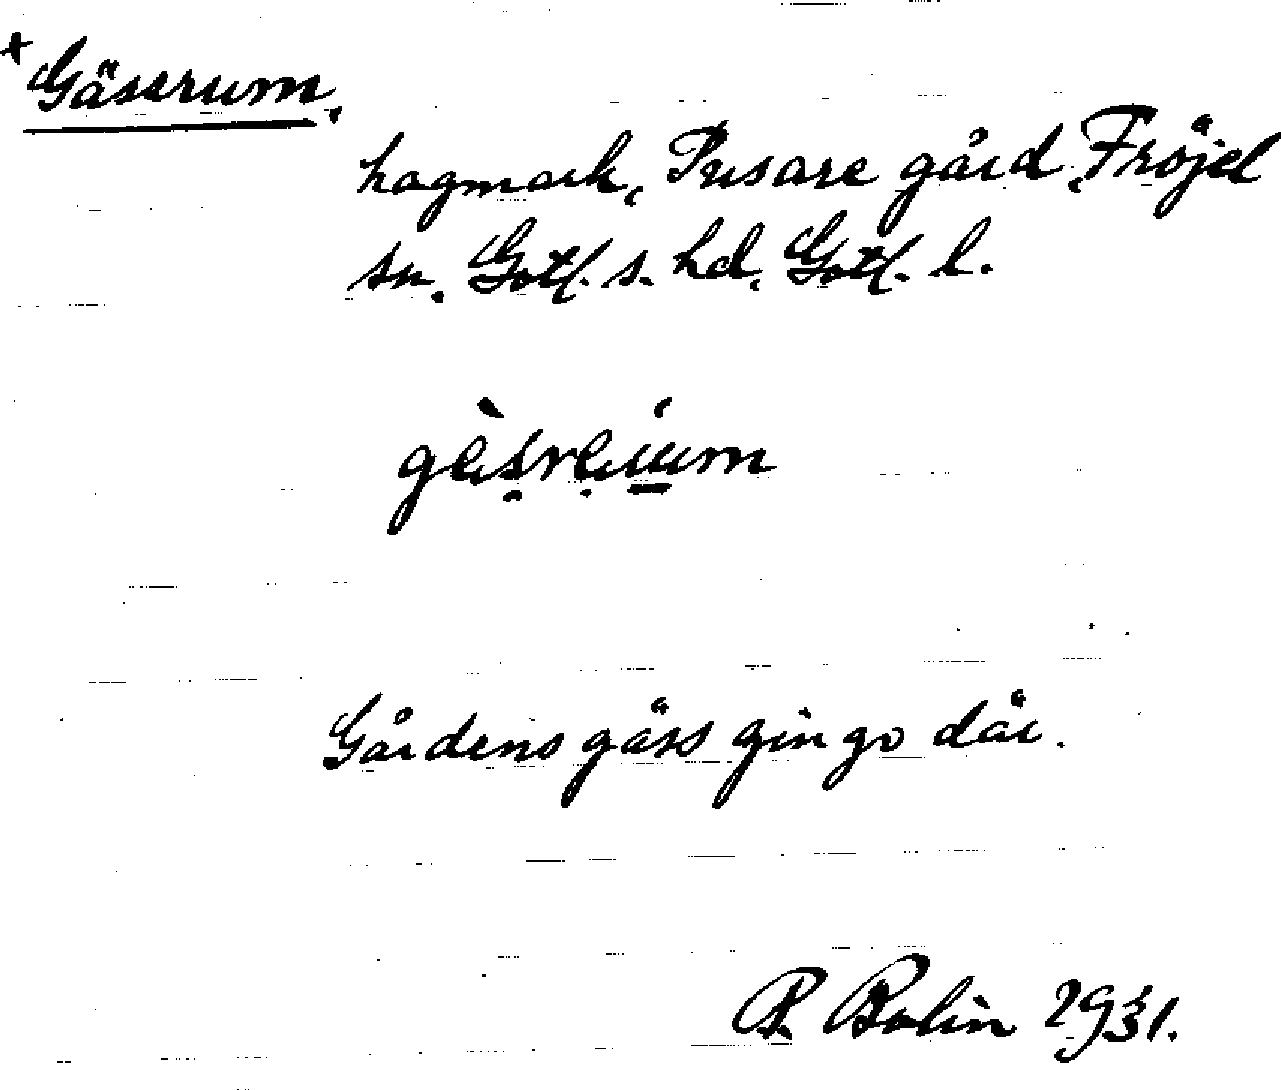 + Gässrum,
hagmark, Pusare gård, Fröjel
sn. Gotl. s. hd, Gotl. l.
Gårdens gäss gingo där.
P. Bolin 1931.